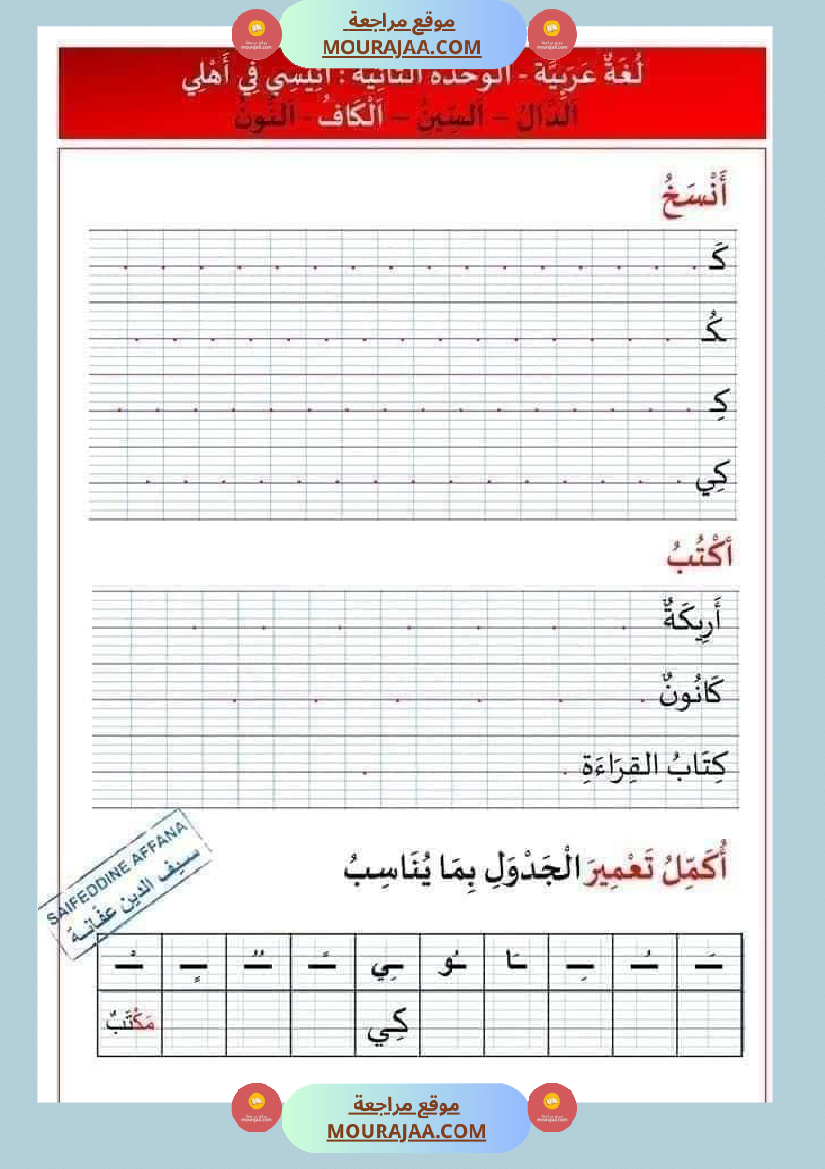 موقع مراجعة
MOURAJAA.COM
لُغَةٌ عَرَبِيَّة - الوحدة الثانية : أَنِيسِي فِي أَهْلِي
اَلدَّالُ – اَلسِّينُ – اَلْكَافُ - اَلنُّونُ
أَنْسَخُ
كَـ
كُـ
كِـ
كِي
أكْتُبُ
أَرِيكَةٌ
كَانُونٌ
كِتَابُ القِرَاءَةِ
SAIFEDDINE AFFANA
سيف الدين عفانة
أُكَمِّلُ تَعْمِيرَ الْجَدْوَلِ بِمَا يُنَاسِبُ
ـَ ـُ ـِ ـَا ـُو ـِي ـً ـٌ ـٍ ـْ
كِي مَكْتَبٌ
موقع مراجعة
MOURAJAA.COM